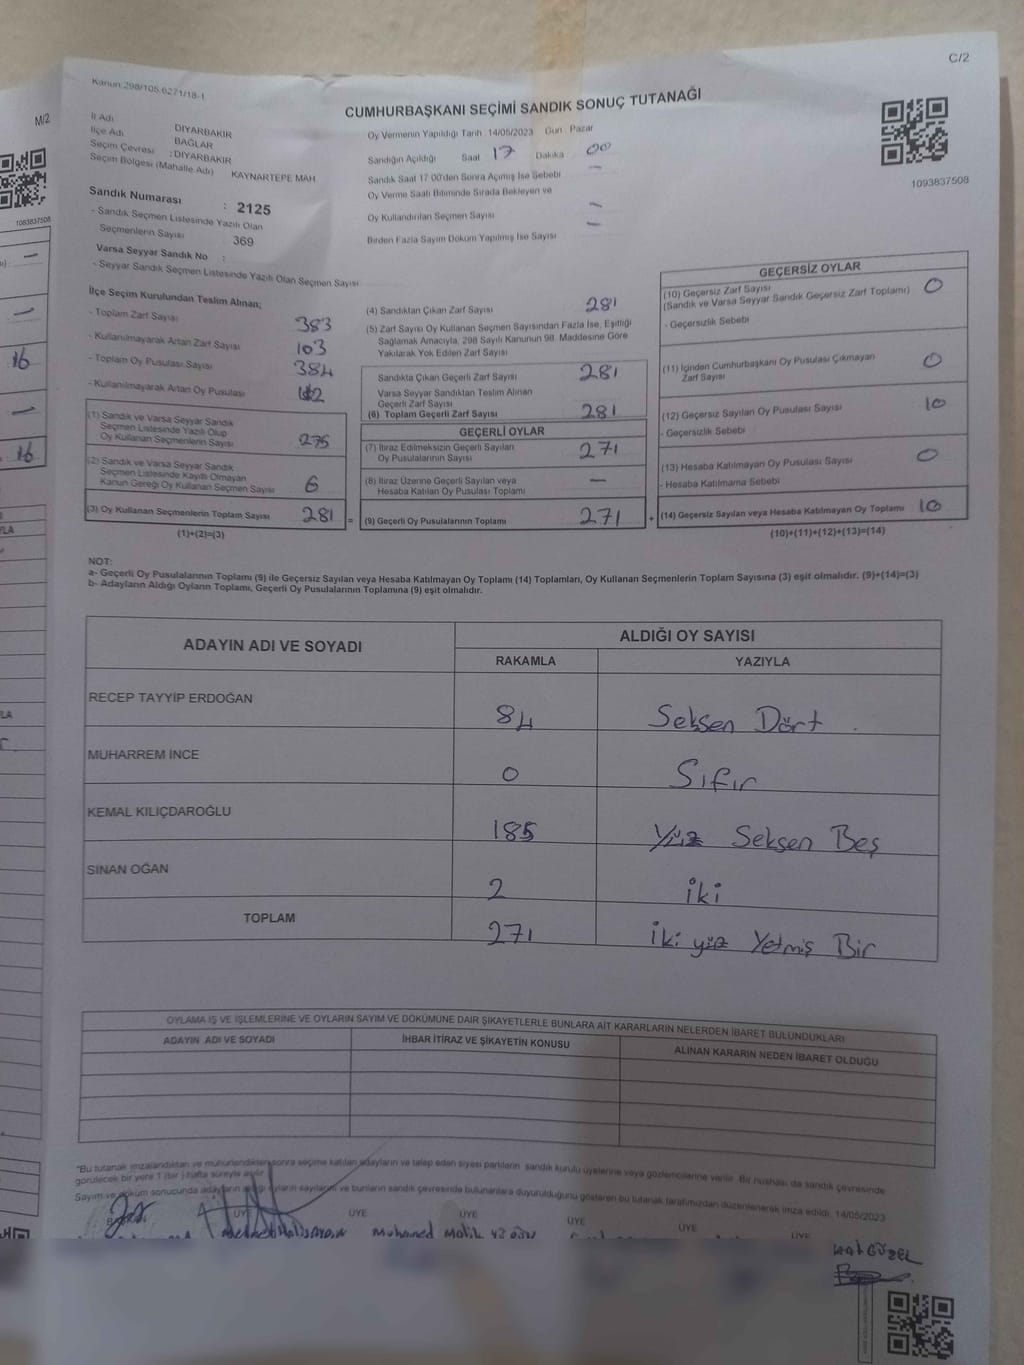 C/2
Kanun:298/105.6271/18-1
CUMHURBAŞKANI SEÇİMİ SANDIK SONUÇ TUTANAĞI
M/2
İl Adı DİYARBAKIR
İlçe Adı BAĞLAR
Seçim Çevresi : DİYARBAKIR
Seçim Bölgesi (Mahalle Adı) KAYNARTEPE MAH
Sandık Numarası : 2125
- Sandık Seçmen Listesinde Yazılı Olan
Seçmenlerin Sayısı 369
Varsa Seyyar Sandık No :
- Seyyar Sandık Seçmen Listesinde Yazılı Olan Seçmen Sayısı
Oy Vermenin Yapıldığı Tarih 14/05/2023 Gün Pazar
Sandığın Açıldığı Saat 17 Dakika 00
Sandık Saat 17:00'den Sonra Açılmış İse Sebebi —
Oy Verme Saati Bitiminde Sırada Bekleyen ve
Oy Kullandırılan Seçmen Sayısı —
Birden Fazla Sayım Döküm Yapılmış İse Sayısı —
1093837508
1083837508
İlçe Seçim Kurulundan Teslim Alınan;
- Toplam Zarf Sayısı 383
- Kullanılmayarak Artan Zarf Sayısı 103
- Toplam Oy Pusulası Sayısı 384
- Kullanılmayarak Artan Oy Pusulası
(1) Sandık ve Varsa Seyyar Sandık
Seçmen Listesinde Yazılı Olup
Oy Kullanan Seçmenlerin Sayısı 275
(2) Sandık ve Varsa Seyyar Sandık
Seçmen Listesinde Kayıtlı Olmayan
Kanun Gereği Oy Kullanan Seçmen Sayısı 6
(3) Oy Kullanan Seçmenlerin Toplam Sayısı 281 =
(1)+(2)=(3)
(4) Sandıktan Çıkan Zarf Sayısı 281
(5) Zarf Sayısı Oy Kullanan Seçmen Sayısından Fazla İse, Eşitliği
Sağlamak Amacıyla, 298 Sayılı Kanunun 98. Maddesine Göre
Yakılarak Yok Edilen Zarf Sayısı
Sandıkta Çıkan Geçerli Zarf Sayısı 281
Varsa Seyyar Sandıktan Teslim Alınan
Geçerli Zarf Sayısı
(6) Toplam Geçerli Zarf Sayısı 281
GEÇERLİ OYLAR
(7) İtiraz Edilmeksizin Geçerli Sayılan
Oy Pusulalarının Sayısı 271
(8) İtiraz Üzerine Geçerli Sayılan veya
Hesaba Katılan Oy Pusulası Toplamı —
(9) Geçerli Oy Pusulalarının Toplamı 271 +
GEÇERSİZ OYLAR
(10) Geçersiz Zarf Sayısı 0
(Sandık ve Varsa Seyyar Sandık Geçersiz Zarf Toplamı)
- Geçersizlik Sebebi
(11) İçinden Cumhurbaşkanı Oy Pusulası Çıkmayan
Zarf Sayısı 0
(12) Geçersiz Sayılan Oy Pusulası Sayısı 10
- Geçersizlik Sebebi
(13) Hesaba Katılmayan Oy Pusulası Sayısı 0
- Hesaba Katılmama Sebebi
(14) Geçersiz Sayılan veya Hesaba Katılmayan Oy Toplamı 10
(10)+(11)+(12)+(13)=(14)
16
16
NOT:
a- Geçerli Oy Pusulalarının Toplamı (9) ile Geçersiz Sayılan veya Hesaba Katılmayan Oy Toplamı (14) Toplamları, Oy Kullanan Seçmenlerin Toplam Sayısına (3) eşit olmalıdır. (9)+(14)=(3)
b- Adayların Aldığı Oyların Toplamı, Geçerli Oy Pusulalarının Toplamına (9) eşit olmalıdır.
ADAYIN ADI VE SOYADI ALDIĞI OY SAYISI
RAKAMLA YAZIYLA
RECEP TAYYİP ERDOĞAN 84 Seksen Dört
MUHARREM İNCE 0 Sıfır
KEMAL KILIÇDAROĞLU 185 Yüz Seksen Beş
SİNAN OĞAN 2 iki
TOPLAM 271 iki yüz Yetmiş Bir
OYLAMA İŞ VE İŞLEMLERİNE VE OYLARIN SAYIM VE DÖKÜMÜNE DAİR ŞİKAYETLERLE BUNLARA AİT KARARLARIN NELERDEN İBARET BULUNDUKLARI
ADAYIN ADI VE SOYADI İHBAR İTİRAZ VE ŞİKAYETİN KONUSU ALINAN KARARIN NEDEN İBARET OLDUĞU
*Bu tutanak imzalandıktan ve mühürlendikten sonra seçime katılan adayların ve talep eden siyasi partilerin sandık kurulu üyelerine veya gözlemcilerine verilir. Bir nüshası da sandık çevresinde
görülecek bir yere 1 (bir) hafta süreyle asılır.
Sayım ve döküm sonucunda adayların aldığı oyların sayılarını ve bunların sandık çevresinde bulunanlara duyurulduğunu gösteren bu tutanak tarafımızdan düzenlenerek imza edildi. 14/05/2023
ÜYE ÜYE ÜYE ÜYE ÜYE ÜYE
GÜZEL